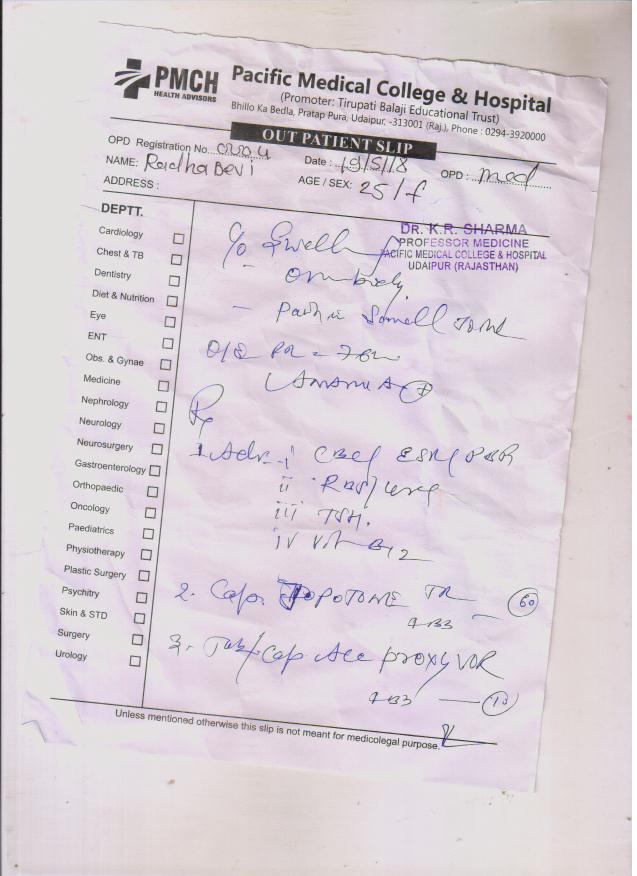 PMCH
HEALTH ADVISORS
Pacific Medical College & Hospital
(Promoter: Tirupati Balaji Educational Trust)
Bhillo Ka Bedla, Pratap Pura, Udaipur, -313001 (Raj.), Phone : 0294-3920000
OUT PATIENT SLIP
OPD Registration No.
Date : 19/5/18
OPD : med
NAME: Radha Devi
AGE / SEX: 25/f
ADDRESS :
DEPTT.
Cardiology
Chest & TB
Dentistry
Diet & Nutrition
Eye
ENT
Obs. & Gynae
Medicine
Nephrology
Neurology
Neurosurgery
Gastroenterology
Orthopaedic
Oncology
Paediatrics
Physiotherapy
Plastic Surgery
Psychitry
Skin & STD
Surgery
Urology
DR. K.R. SHARMA
PROFESSOR MEDICINE
PACIFIC MEDICAL COLLEGE & HOSPITAL
UDAIPUR (RAJASTHAN)
c/o
- on body
- Small Joint
O/E PR =
Rx
1. Adv. i CBC/ ESR/ PBF
ii RBS/ urea
iii TSH.
iv Vit B12
2. Cap. TR
— 60
3. Tab/Cap Ace proxyvor
— 10
Unless mentioned otherwise this slip is not meant for medicolegal purpose.